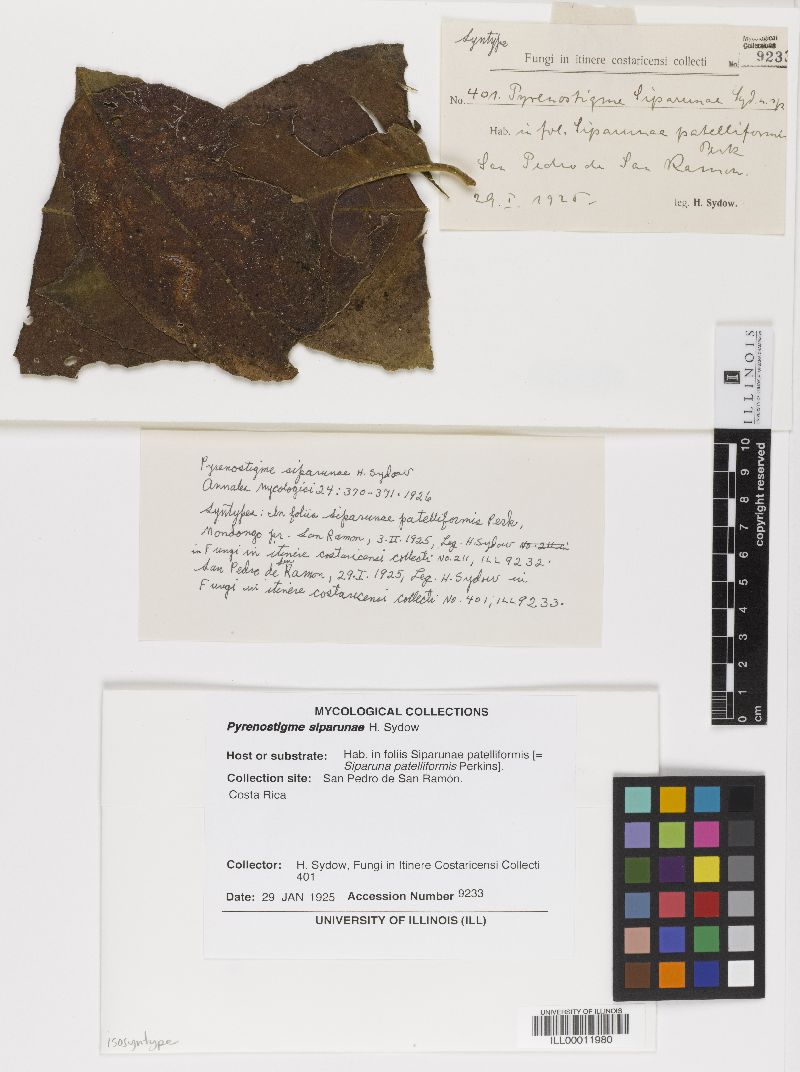 Syntype
Mycological
Collections
Fungi in itinere costaricensi collecti
No. 9233
No. 401. Pyrenostigme Siparunae Syd. n. sp
Hab. in fol. Siparunae patelliformis
Perk
San Pedro de San Ramon.
29. I. 1925
leg. H. Sydow.
ILLINOIS
Pyrenostigme siparunae H. Sydow
Annales Mycologici 24: 370-371. 1926
Syntypes: In foliis Siparunae patelliformis Perk,
Mondongo pr. San Ramon, 3. II. 1925, Leg. H. Sydow
in Fungi in itinere costaricensi collecti No. 211, ILL 9232.
San Pedro de San Ramon, 29. I. 1925, Leg. H. Sydow in
Fungi in itinere costaricensi collecti No. 401, ILL 9233.
0 1 2 3 4 5 6 7 8 9 10
cm
copyright reserved
MYCOLOGICAL COLLECTIONS
Pyrenostigme siparunae H. Sydow
Host or substrate: Hab. in foliis Siparunae patelliformis [=
Siparuna patelliformis Perkins].
Collection site: San Pedro de San Ramón.
Costa Rica
Collector: H. Sydow, Fungi in Itinere Costaricensi Collecti
401
Date: 29 JAN 1925 Accession Number 9233
UNIVERSITY OF ILLINOIS (ILL)
isosyntype
UNIVERSITY OF ILLINOIS
ILL00011980